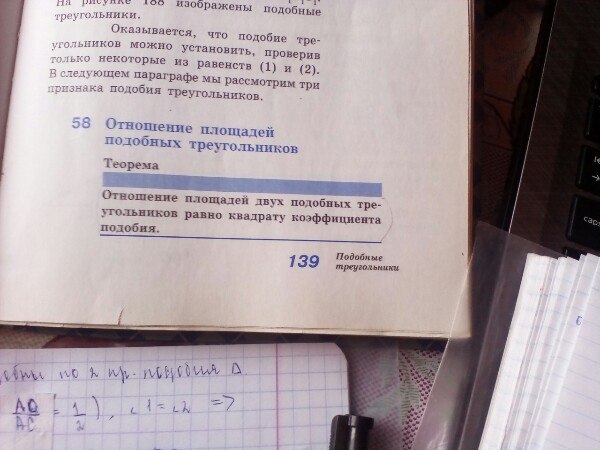 На рисунке 188 изображены подобные
треугольники.
Оказывается, что подобие тре-
угольников можно установить, проверив
только некоторые из равенств (1) и (2).
В следующем параграфе мы рассмотрим три
признака подобия треугольников.
58 Отношение площадей
подобных треугольников
Теорема
Отношение площадей двух подобных тре-
угольников равно квадрату коэффициента
подобия.
139 Подобные
треугольники
по 2 пр. подобия Δ
AO/AC = 1/2), ∠1=∠2 =>
caps